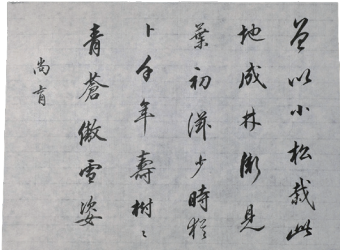 曾以小松栽此
地成林漸見
葉初濃少時猶
卜千年壽樹〻
青蒼傲雪姿
尚育